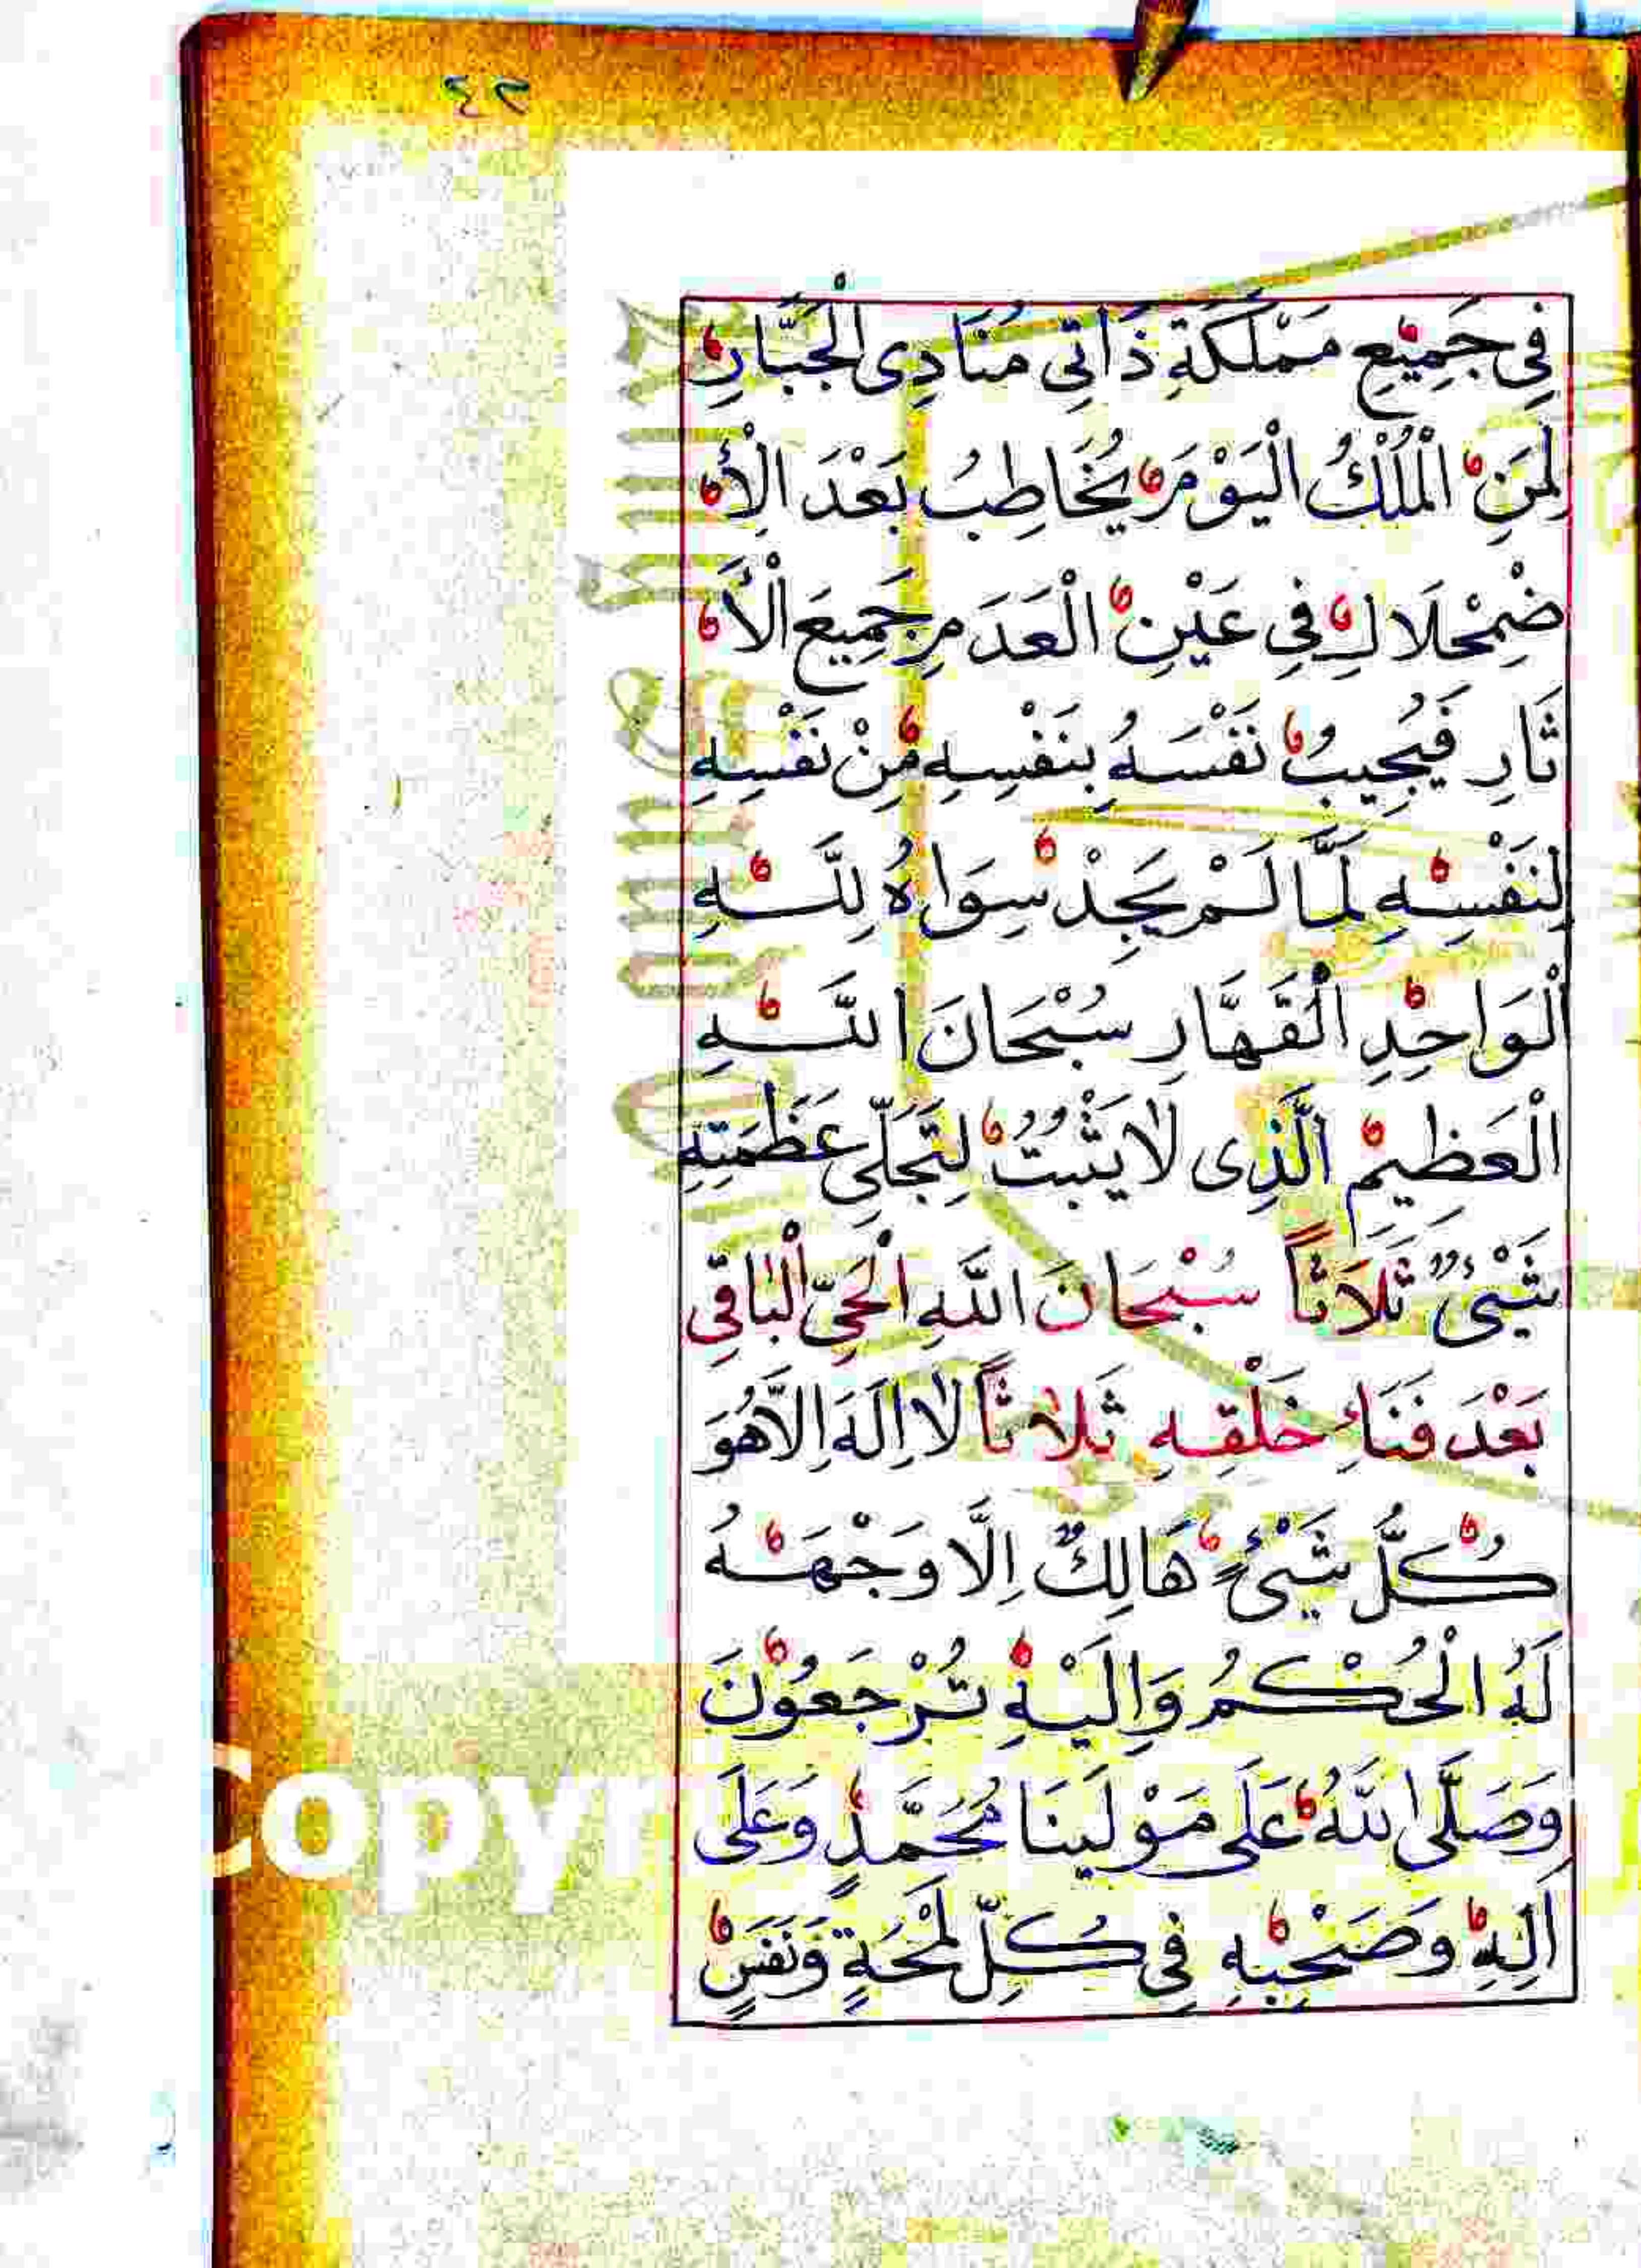 ٢٤
فِى جَمِيْعِ مَمْلَكَةِ ذَاتِى مُنَادِى الْجَبَّارِ
لِمَنِ الْمُلْكُ الْيَوْمَ يُخَاطِبُ بَعْدَ الْاِ
ضْمِحْلَالِ فِى عَيْنِ الْعَدَمِ جَمِيعَ الْأَ
ثَارِ فَيُجِيبُ نَفْسَهُ بِنَفْسِهِ مِنْ نَفْسِهِ
لِنَفْسِهِ لَمَّا لَمْ يَجِدْ سِوَاهُ لِلَّهِ
الْوَاحِدِ الْقَهَّارِ سُبْحَانَ اللّٰهِ
الْعَظِيمِ الَّذِى لَا يَثْبُتُ لِتَجَلِّى عَظَمَتِهِ
شَيْئٌ ثَلَاثاً سُبْحَانَ اللّٰهِ الْحَيِّ الْبَاقِى
بَعْدَ فَنَاءِ خَلْقِهِ ثَلَاثاً لَا اِلَهَ اِلَّا هُوَ
كُلُّ شَيْئٍ هَالِكٌ اِلَّا وَجْهَهُ
لَهُ الْحُكْمُ وَاِلَيْهِ تُرْجَعُوْنَ
وَصَلَّى اللّٰهُ عَلَى مَوْلَينَا مُحَمَّدٍ وَعَلَى
اَلِهِ وَصَحْبِهِ فِى كُلِّ لَمْحَةٍ وَنَفَسٍ
Copyr